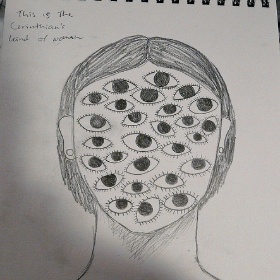 This is The
Corinthian's
kind of woman